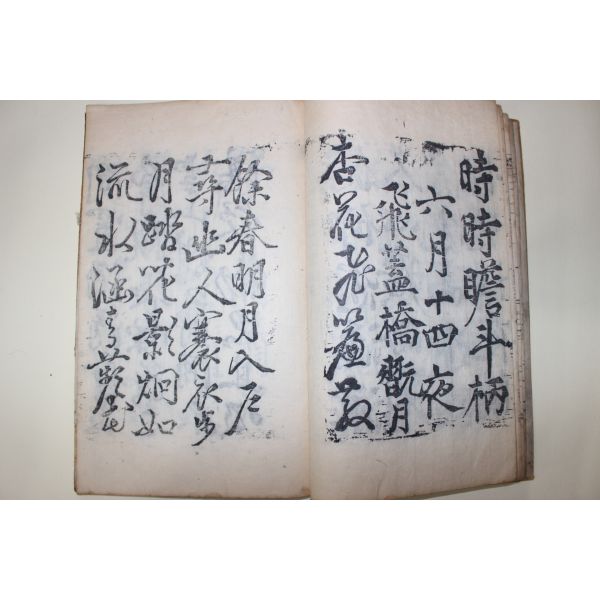 時時瞻斗柄
六月十四夜
飛蓋橋翫月
杏花飛簾散
餘春明月入戶
尋幽人褰衣步
月踏花影炯如
流水涵靑蘋花